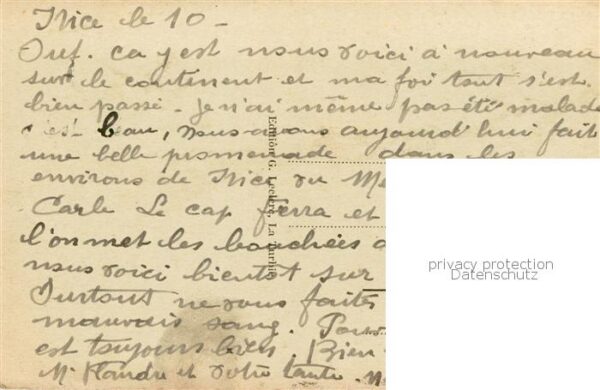 Nice le 10 -
Ouf. ca y est nous voici à nouveau
sur le continent et ma foi tout s'est
bien passé - je n'ai même pas été malade
c'est beau, nous avons aujourd'hui fait
une belle promenade dans les
environs de Nice du M
Carle Le cap ferra et
l'on met les bouchées d
nous voici bientôt sur
Surtout ne vous faites
mauvais sang.
est toujours bien. Bien
Mr et votre tante.
Edition G. Leclère, La Turbie
privacy protection
Datenschutz